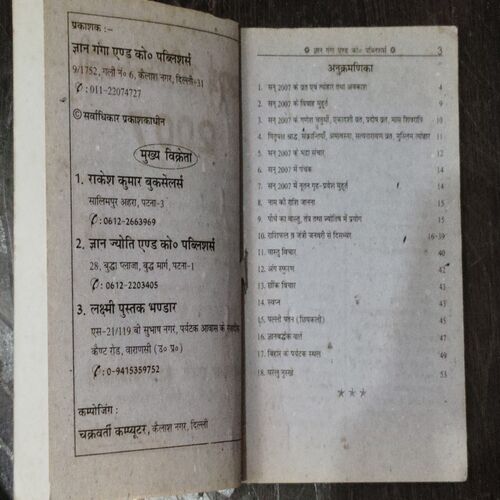 प्रकाशक :–
ज्ञान गंगा एण्ड को० पब्लिशर्स
9/1752, गली नं० 6, कैलाश नगर, दिल्ली-31
✆ : 011-22074727
© सर्वाधिकार प्रकाशकाधीन
मुख्य विक्रेता
1. राकेश कुमार बुकसेलर्स
सालिमपुर अहरा, पटना-3
✆ : 0612-2663969
2. ज्ञान ज्योति एण्ड को० पब्लिशर्स
28, बुद्धा प्लाजा, बुद्ध मार्ग, पटना-1
✆ : 0612-2203405
3. लक्ष्मी पुस्तक भण्डार
एस-21/119 बी सुभाष नगर, पर्यटक आवास के
कैण्ट रोड, वाराणसी (उ० प्र०)
✆ : 0-9415359752
कम्पोजिंग :
चक्रवर्ती कम्प्यूटर, कैलाश नगर, दिल्ली
ज्ञान गंगा एण्ड को० पब्लिशर्स 3
अनुक्रमणिका
1. सन् 2007 के व्रत एवं त्योहार तथा अवकाश 4
2. सन् 2007 के विवाह मुहूर्त 9
3. सन् 2007 के गणेश चतुर्थी, एकादशी व्रत, प्रदोष व्रत, मास शिवरात्रि 10
4. पितृपक्ष श्राद्ध, संक्रान्तियाँ, अमावस्या, सत्यनारायण व्रत, मुस्लिम त्योहार 11
5. सन् 2007 के भद्रा संचार 12
6. सन् 2007 में पंचक 14
7. सन् 2007 में नूतन गृह-प्रवेश मुहूर्त 14
8. नाम की राशि जानना 15
9. पौधे का वास्तु, तंत्र तथा ज्योतिष में प्रयोग 15
10. राशिफल व जंत्री जनवरी से दिसम्बर 16-39
11. वास्तु विचार 40
12. अंग स्फुरण 42
13. छींक विचार 43
14. स्वप्न 43
15. पल्ली पतन (छिपकली) 45
16. ज्ञानवर्द्धक वार्ता 47
17. बिहार के पर्यटक स्थल 49
18. घरेलू नुस्खे 53
★★★